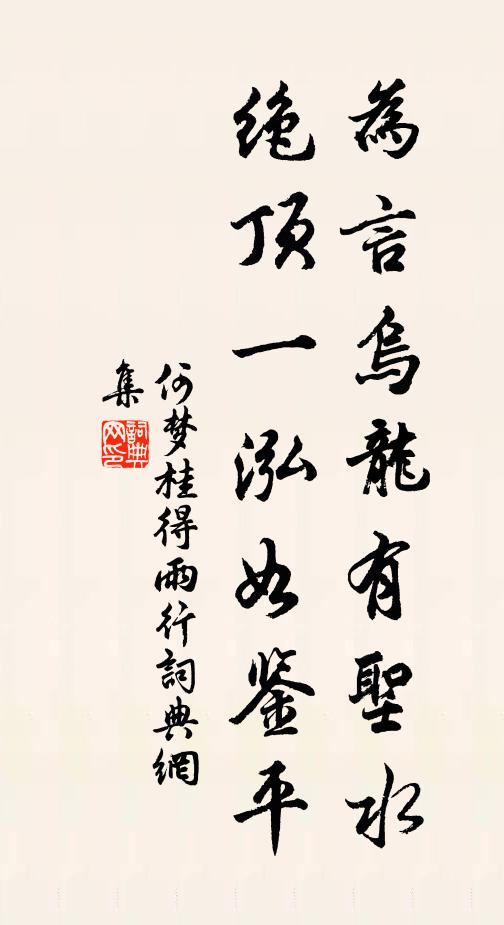 為言烏龍有聖水
绝顶一泓如鉴平
何梦桂得雨行詞典網
集
詞典网印